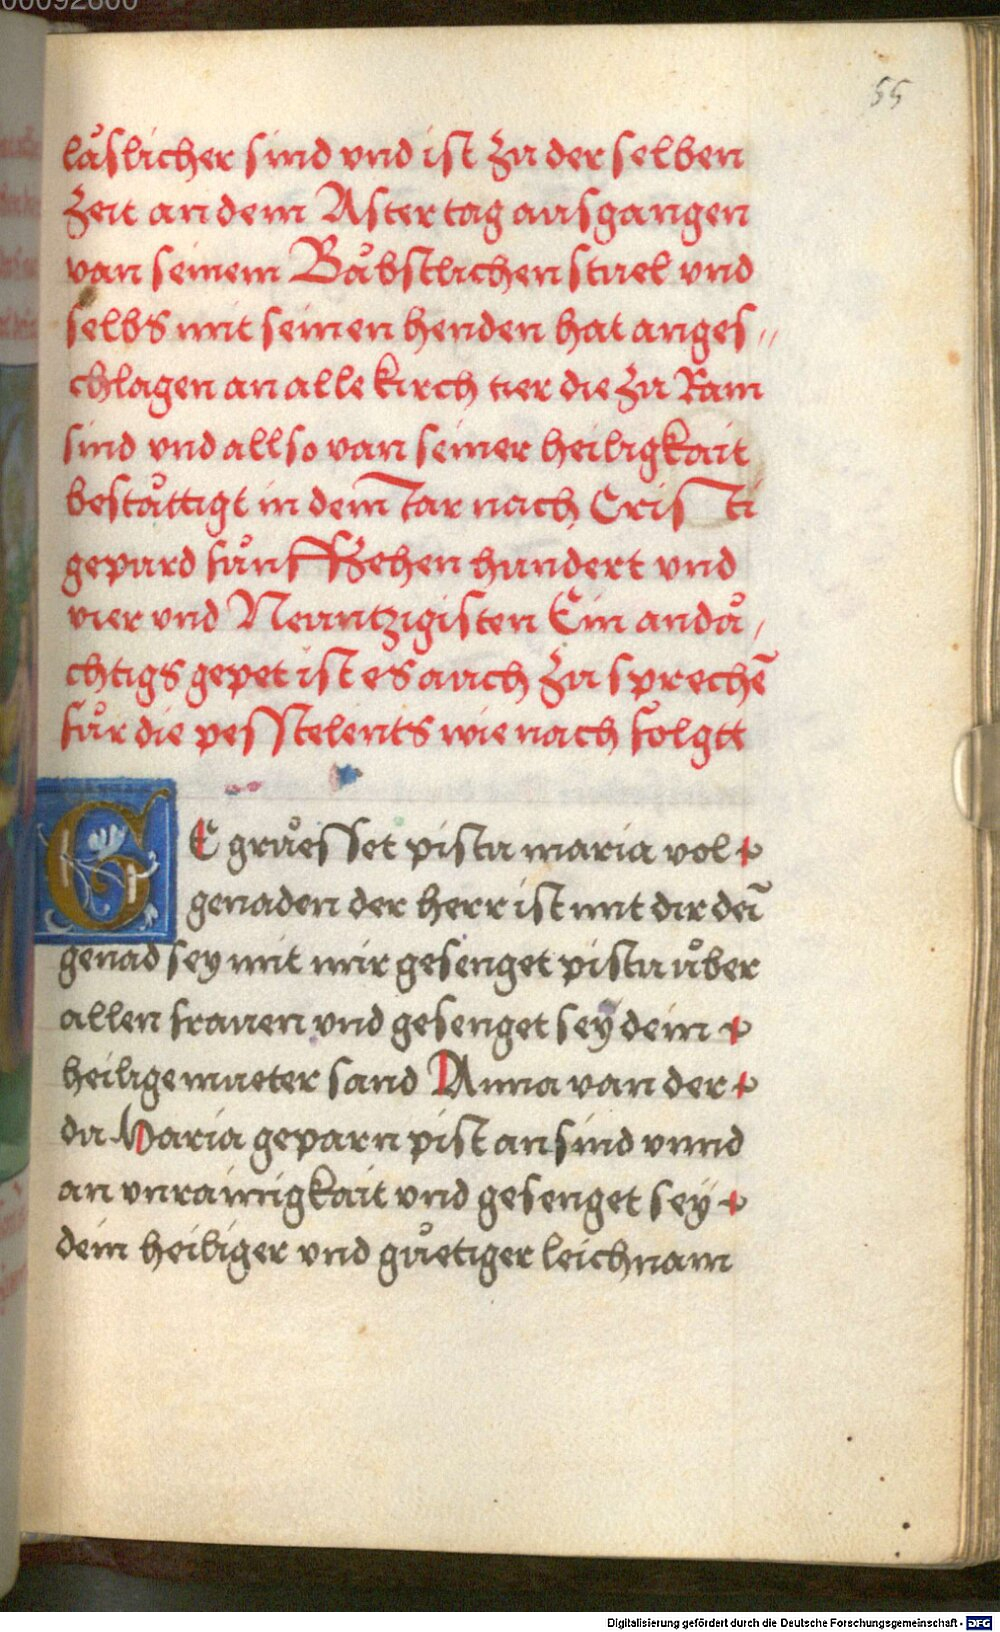 00092800
55
låslicher sind vnd ist zu der selben
zeit an dem Astertag ausgangen
van seinem Båbstlichen stuel vnd
selbs mit seinen henden hat anges〃
chlagen an alle kirch tier die zu Ram
sind vnd allso van seiner heiligkait
beståttigt in dem̅ Iar nach Cristi
gepurd fůnffzehen hundert vnd
vier vnd Neuntzigisten Ein andå/
chtigs gepet ist es auch zu sprechē
fůr die pesstelents wie nach folgtt
GE grůesset pistu maria vol
genaden der herr ist mit dir dei̅
genad sey mit mir gesenget pistu ůber
allen frauen vnd gesenget seÿ dein
heilige mueter sand Anna van der
du Maria geparn pist an sind vnnd
an vnrainigkait vnd gesenget seÿ
dein heiliger vnd gůetiger leichnam
Digitalisierung gefördert durch die Deutsche Forschungsgemeinschaft - DFG